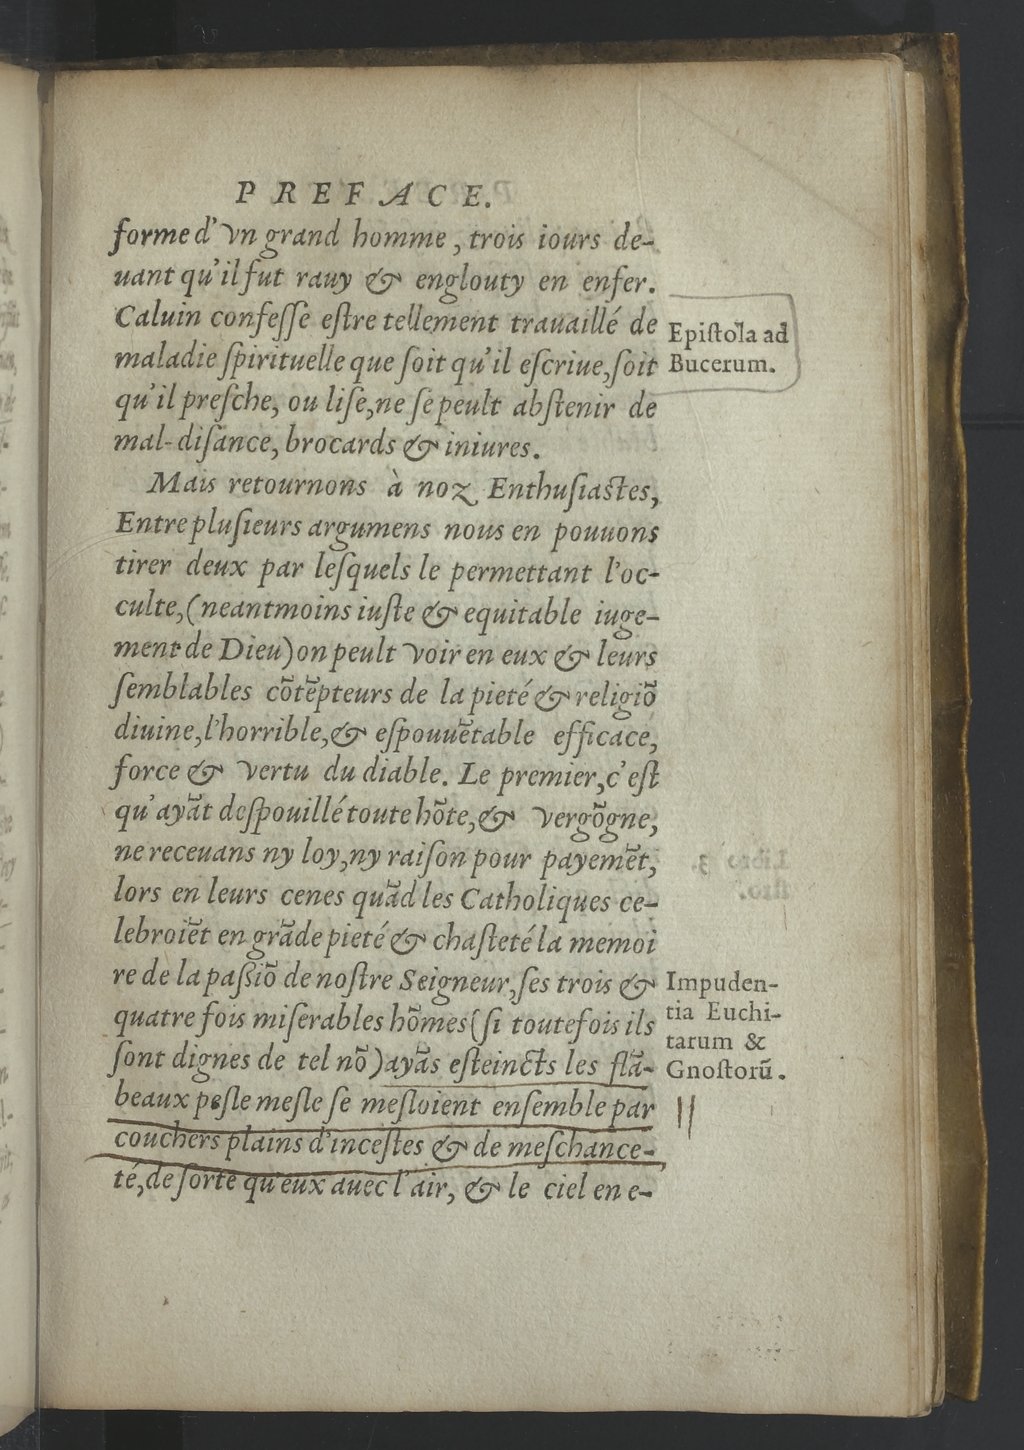 PREFACE.
forme d'vn grand homme, trois iours de-
uant qu'il fut rauy & englouty en enfer.
Caluin confeſſe eſtre tellement trauaillé de
maladie ſpirituelle que ſoit qu'il eſcriue, ſoit
qu'il preſche, ou liſe, ne ſe peult abſtenir de
mal-diſance, brocards & iniures.
Epiſtola ad
Bucerum.
Mais retournons à noz Enthuſiaſtes,
Entre pluſieurs argumens nous en pouuons
tirer deux par leſquels le permettant l'oc-
culte, (neantmoins iuſte & equitable iuge-
ment de Dieu) on peult voir en eux & leurs
ſemblables cōtēpteurs de la pieté & religiō
diuine, l'horrible, & eſpouuētable efficace,
force & vertu du diable. Le premier, c'eſt
qu'ayāt deſpouillé toute hōte, & vergōgne,
ne receuans ny loy, ny raiſon pour payemēt,
lors en leurs cenes quād les Catholiques ce-
lebroiēt en grāde pieté & chaſteté la memoi
re de la paſſiō de noſtre Seigneur, ſes trois &
quatre fois miſerables hōmes (ſi toutefois ils
ſont dignes de tel nō) ayās eſteincts les flā-
beaux peſle meſle ſe meſloient enſemble par
couchers plains d'inceſtes & de meſchance-
té, de ſorte qu'eux auec l'air, & le ciel en e-
Impuden-
tia Euchi-
tarum &
Gnoſtorū.